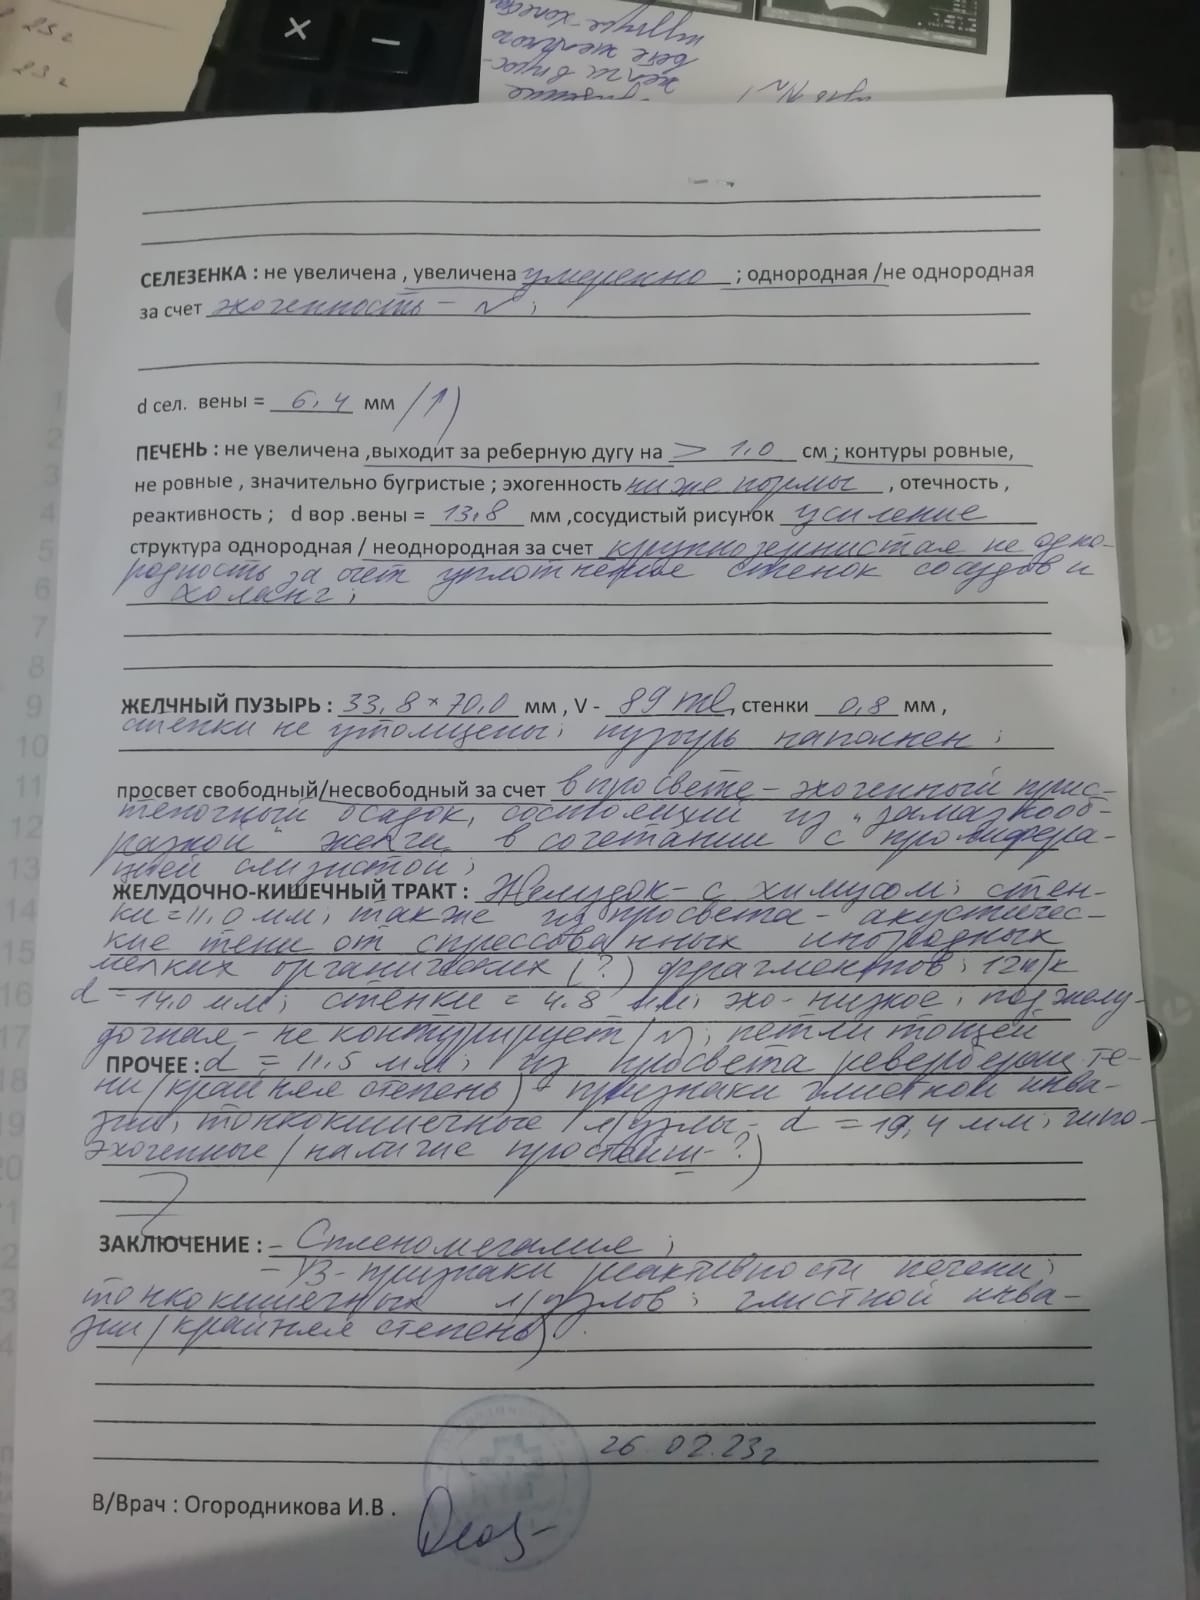 23 г
23 г
× −
СЕЛЕЗЕНКА : не увеличена , увеличена умеренно ; однородная /не однородная
за счет эхогенность – N ;
d сел. вены = 6,4 мм (↑)
ПЕЧЕНЬ : не увеличена ,выходит за реберную дугу на > 1,0 см ; контуры ровные,
не ровные , значительно бугристые ; эхогенность ниже нормы , отечность ,
реактивность ; d вор .вены = 13,8 мм ,сосудистый рисунок усиление
структура однородная / неоднородная за счет крупнозернистая не одно-
родность за счет уплотнения стенок сосудов и
холанг ;
ЖЕЛЧНЫЙ ПУЗЫРЬ : 33,8 × 70,0 мм , V - 89 ml, стенки 0,8 мм ,
стенки не утолщены; пузырь наполнен ;
просвет свободный/несвободный за счет в просвете – эхогенный прис-
теночный осадок, состоящий из „замазкооб-
разной" желчи в сочетании с пролифера-
цией слизистой ;
ЖЕЛУДОЧНО-КИШЕЧНЫЙ ТРАКТ : Желудок – с химусом; стен-
ки = 11,0 мм; также из просвета – акустичес-
кие тени от спрессованных инородных
мелких органических (?) фрагментов; 12п/к
d = 14,0 мм; стенки = 4.8 мм; эхо- низкое; поджелу-
дочная – не контурирует (N); петли тощей
ПРОЧЕЕ : d = 11,5 мм; из просвета ревербераци те-
ни (крайняя степень) – признаки глистной инва-
зии; тонкокишечные л/узлы – d = 19,4 мм; гипо-
эхогенные (наличие простейш-?)
ЗАКЛЮЧЕНИЕ : – Спленомегалия ;
– УЗ-признаки реактивности печени;
тонкокишечных л/узлов; глистной инва-
зии (крайняя степень) .
26 02.23г
В/Врач : Огородникова И.В .